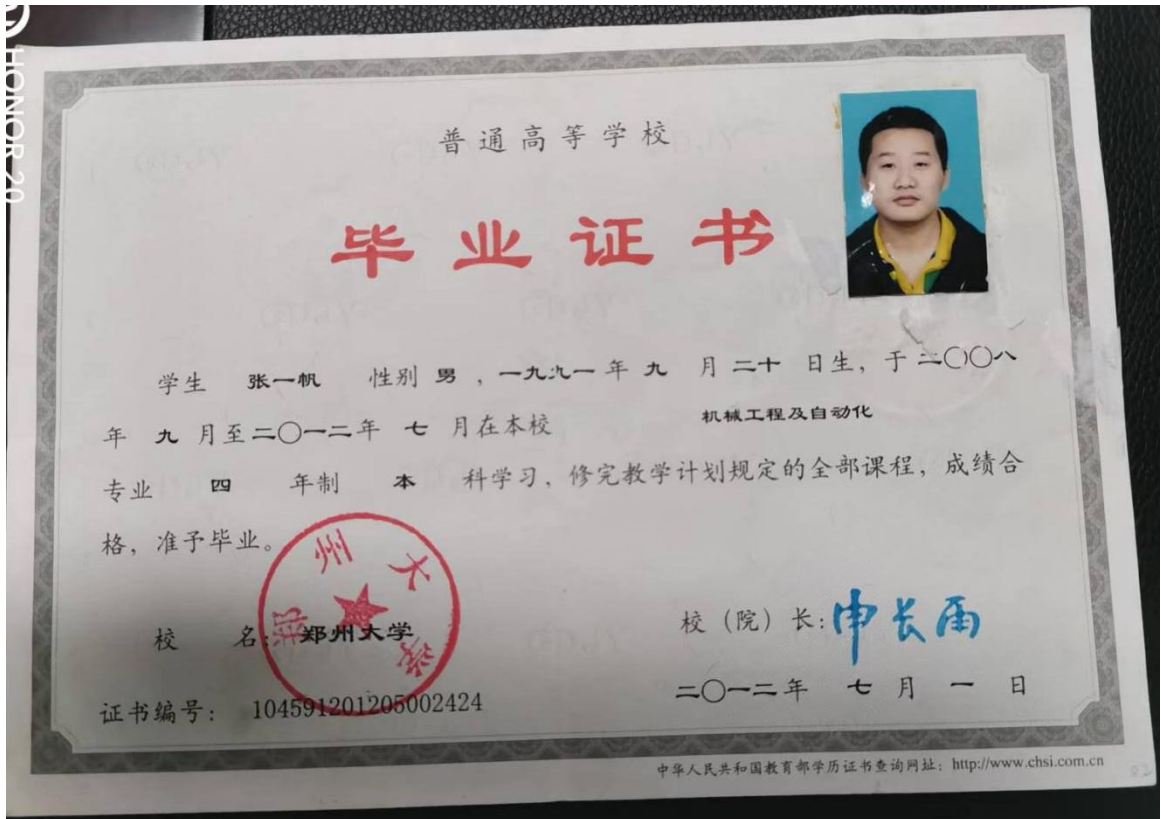 HONOR 20
普通高等学校
毕业证书
学生 张一帆 性别 男 ，一九九一 年 九 月 二十 日生，于 二〇〇八
年 九 月至 二〇一二 年 七 月在本校 机械工程及自动化
专业 四 年制 本 科学习，修完教学计划规定的全部课程，成绩合
格，准予毕业。
郑州大学
校 名：郑州大学
校（院）长：申长雨
证书编号： 104591201205002424
二〇一二 年 七 月 一 日
中华人民共和国教育部学历证书查询网址：http://www.chsi.com.cn